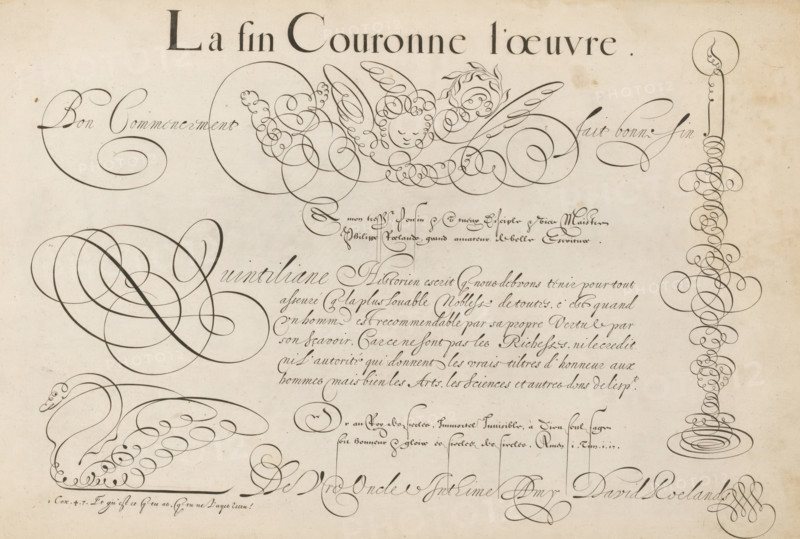 La fin Couronne l'œuvre.
Bon Commencement fait bonne fin
A mon Cousin & Disciple Maistre
Philippe Roelands, grand amateur de belle Escriture.
Quintiliane Historien escrit q̃ nous debvons tenir pour tout
asseure q̃ la plus louable Noblesse de toutes, c'est quand
un homme est recommendable par sa propre Vertu & par
son sçavoir. Car ce ne sont pas les Richesses, ni le credit
ni l'autorité qui donnent les vrais tiltres d'honneur aux
hommes, mais bien les Arts, les Sciences et autres dons de l'esp.
Or au Roy des siecles, Immortel Invisible, à Dieu seul sage
soit honneur & gloire es siecles des siecles. Amen. 1. Tim. 1. 17.
De Vre Oncle & Intime Amy David Roelands
1. Cor. 4. 7. Et qu'est ce q̃ tu as, q̃ tu ne l'ayes receu?